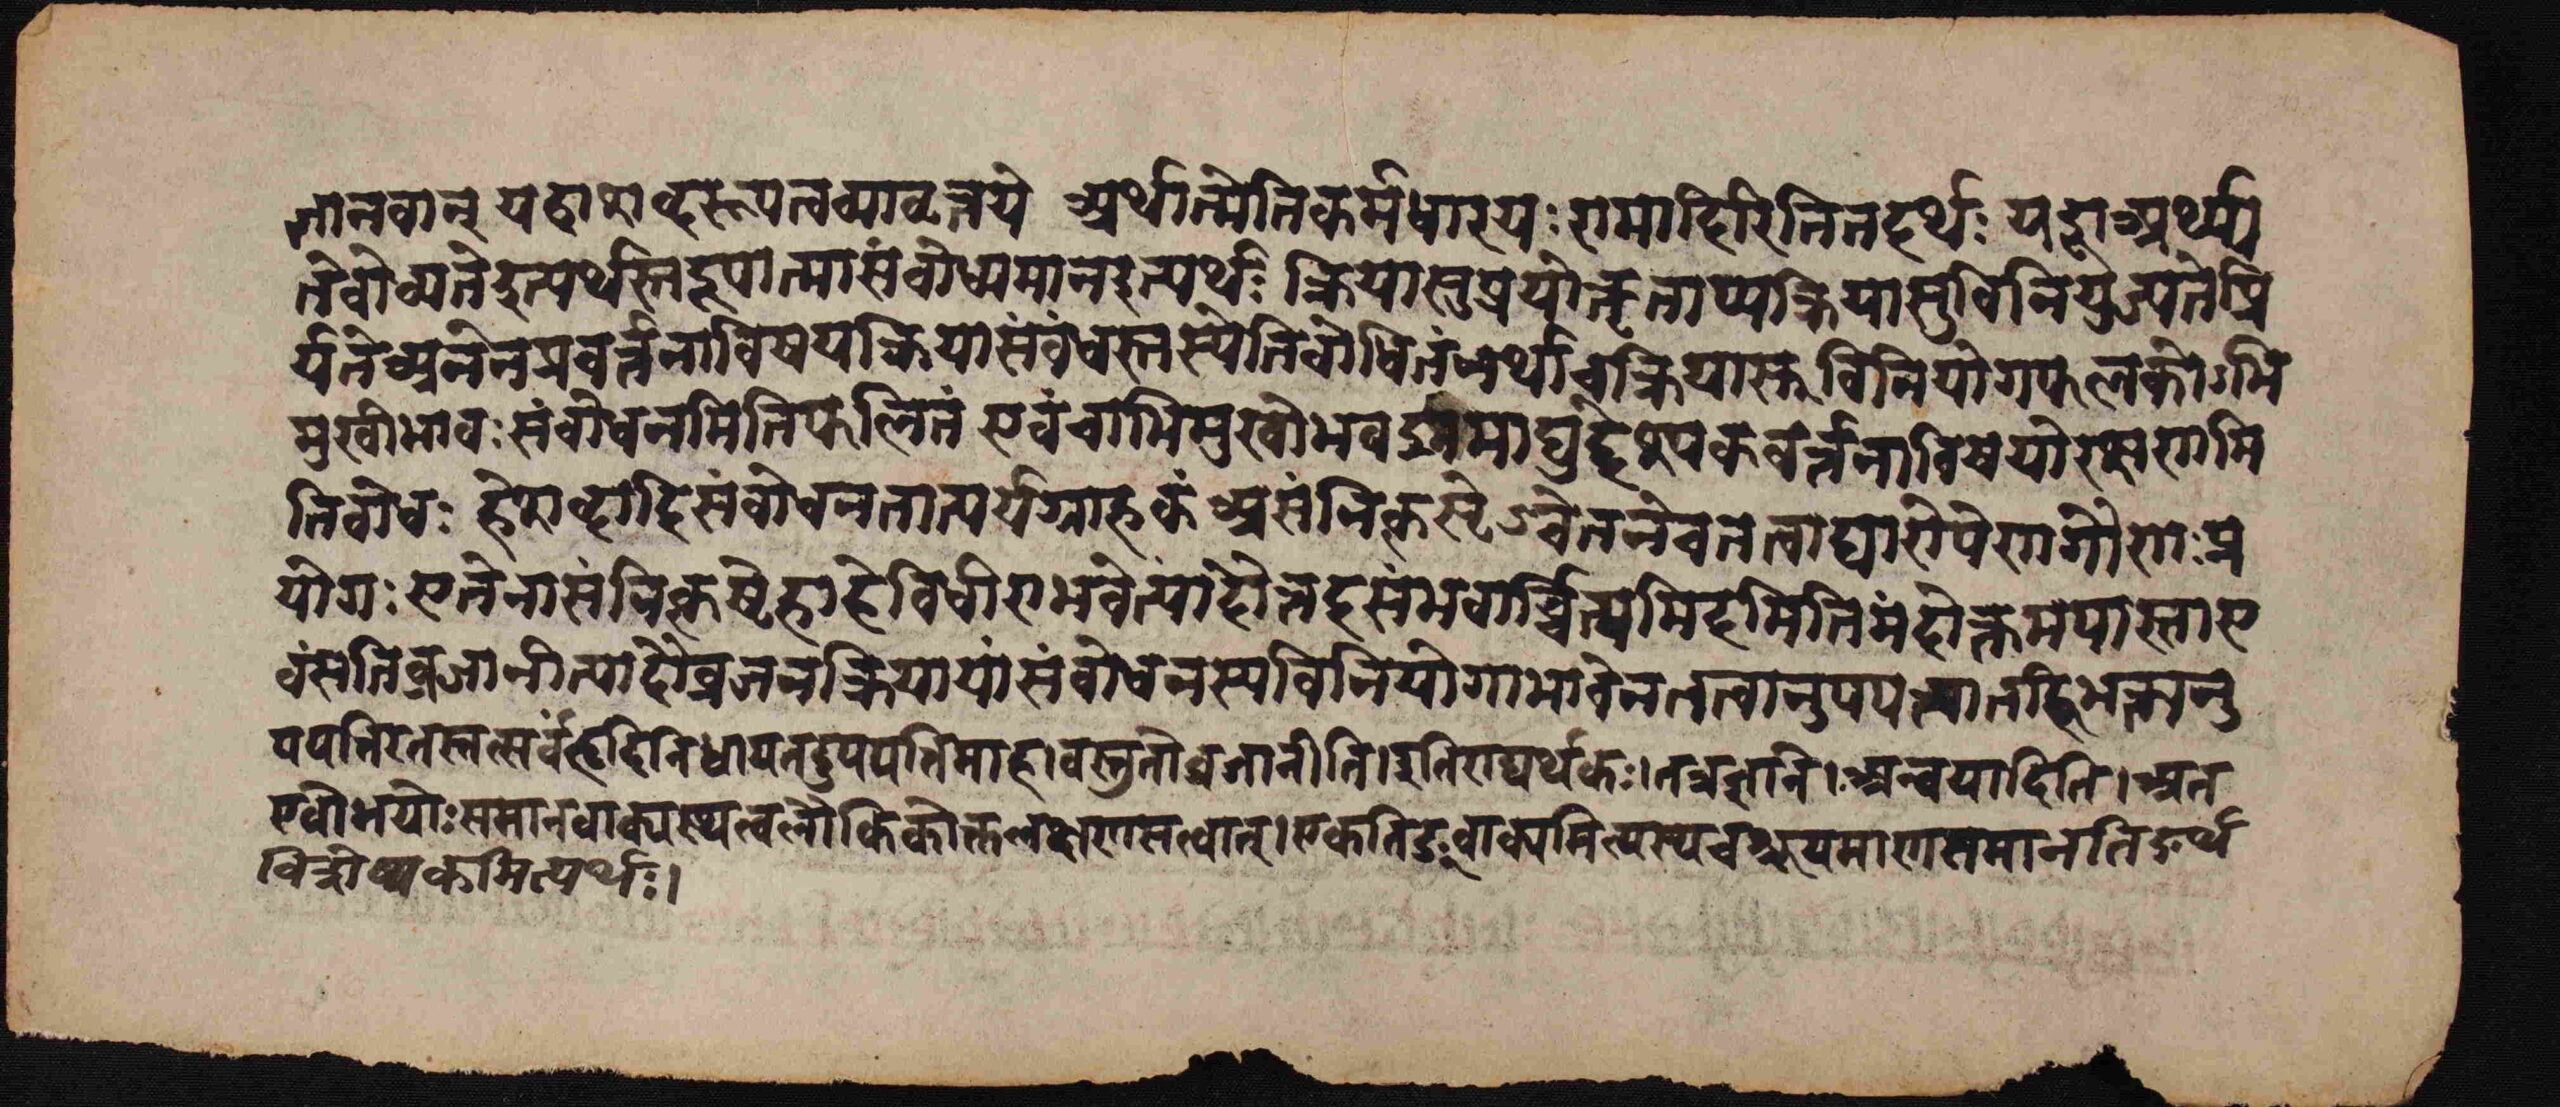 ज्ञानवान् यद्वा शब्दरूपत्वव्यावृत्तये अर्थात्मेति कर्मधारयः रामादिरिति तदर्थः यद्वा अर्थ्य
ते बोध्यते इत्यर्थस्तद्रूपात्मा संबोध्यमान इत्यर्थः क्रियासु प्रयोक्तृताप्य क्रियासु विनियुज्यते प्रे
र्यते अनेन प्रवर्तनाविषयक्रियासंबंधस्तस्येति बोधितं अर्थाच्च क्रियासु विनियोगफलकोऽभि
मुखीभावः संबोधनमिति फलितं एवं चाभिमुखीभवद्रामाद्युद्देश्यकप्रवर्तनाविषयो रक्षणमि
ति बोधः हे शब्दादि संबोधनतात्पर्यग्राहकं असंनिकृष्टेऽचेतने चेतनत्वाद्यारोपेण गौणः प्र
योगः एतेनासंनिकृष्टे हा हे विधीरभवेत्यादौ तदसंभवाच्चिंत्यमिदमिति मंदोक्तमपास्तं ए
वं सति व्रजानीत्यादौ व्रजनक्रियायां संबोधनस्य विनियोगाभावेन तत्त्वानुपपत्त्या तद्विभक्त्यनु
पपत्तिरतस्तत्सर्वं हृदि निधाय तदुपपत्तिमाह। वस्तुतो व्रजानीति। इतिराद्यर्थकः। तत्र ज्ञाने। अन्वयादिति। अत
एवोभयोः समानवाक्यस्थत्वलौकिकोक्तलक्षणसत्त्वात्। एकतिङ् वाक्यमित्यस्य च श्रूयमाणसमानतिङर्थ
विशेष्यकमित्यर्थः।